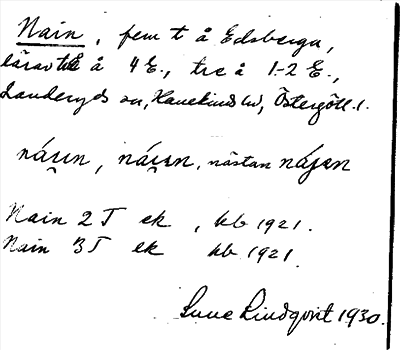 Nain, fem t å Edsberga,
å 4 E., tre å 1-2 E.,
Landeryds sn, Hanekinds hd, Östergötl. l.
náɪ̯ɪn, náɪ̯ən, nästan nájən
Nain 2 T ek, kb 1921.
Nain 3 T ek kb 1921.
Sune Lindqvist 1930.